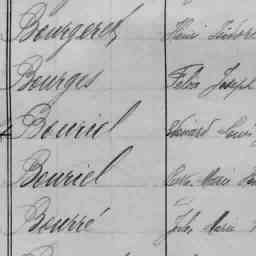 Bourgeret Henri
Bourges Félix Joseph
Bouriel Edouard Louis
Bouriel Marie
Bourré Jules Marie